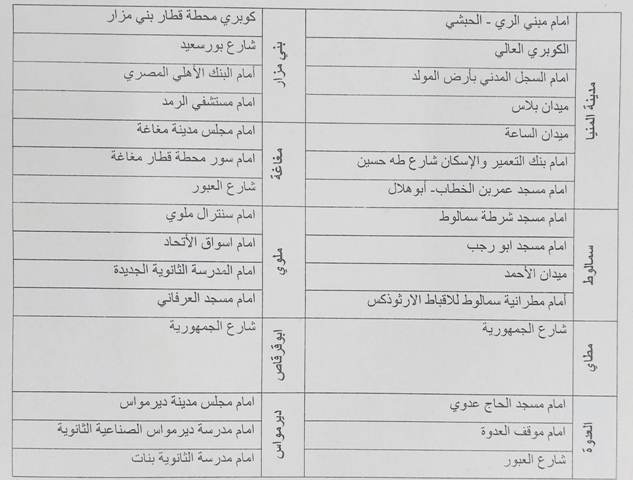 مدينة المنيا
امام مبني الري - الحبشي
الكوبري العالي
امام السجل المدني بأرض المولد
ميدان بلاس
ميدان الساعة
امام بنك التعمير والإسكان شارع طه حسين
امام مسجد عمربن الخطاب- أبوهلال
سمالوط
امام مسجد شرطة سمالوط
امام مسجد ابو رجب
ميدان الأحمد
أمام مطرانية سمالوط للاقباط الارثوذكس
مطاي
شارع الجمهورية
العدوة
امام مسجد الحاج عدوي
امام موقف العدوة
شارع العبور
بني مزار
كوبري محطة قطار بني مزار
شارع بورسعيد
أمام البنك الأهلي المصري
امام مستشفي الرمد
مغاغة
امام مجلس مدينة مغاغة
امام سور محطة قطار مغاغة
شارع العبور
ملوي
امام سنترال ملوي
امام اسواق الأتحاد
امام المدرسة الثانوية الجديدة
امام مسجد العرفاني
ابوقرقاص
شارع الجمهورية
ديرمواس
امام مجلس مدينة ديرمواس
امام مدرسة ديرمواس الصناعية الثانوية
امام مدرسة الثانوية بنات